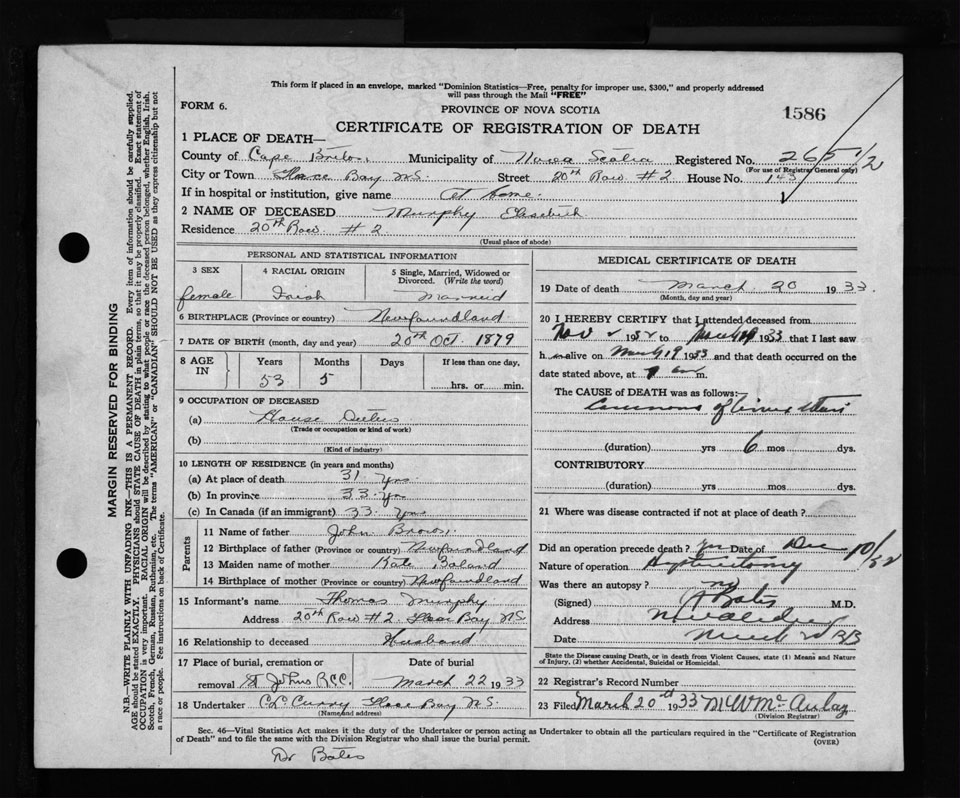 This form if placed in an envelope, marked "Dominion Statistics—Free, penalty for improper use, $300," and properly addressed
will pass through the Mail "FREE"
FORM 6.
PROVINCE OF NOVA SCOTIA
1586
CERTIFICATE OF REGISTRATION OF DEATH
1 PLACE OF DEATH—
County of Cape Breton, Municipality of Nova Scotia Registered No. 265 1/2
(For use of Registrar General only)
City or Town Glace Bay N.S. Street 20th Row #2 House No. 143
If in hospital or institution, give name at home.
2 NAME OF DECEASED Murphy Elisebith
Residence 20th Row #2
(Usual place of abode)
PERSONAL AND STATISTICAL INFORMATION
3 SEX 4 RACIAL ORIGIN 5 Single, Married, Widowed or Divorced. (Write the word)
female Irish Married
6 BIRTHPLACE (Province or country) Newfoundland
7 DATE OF BIRTH (month, day and year) 20th Oct. 1879
8 AGE IN Years Months Days If less than one day,
53 5 hrs. or min.
9 OCCUPATION OF DECEASED
(a) House Duties
(Trade or occupation or kind of work)
(b)
(Kind of industry)
10 LENGTH OF RESIDENCE (in years and months)
(a) At place of death 31 yrs
(b) In province 33 yr
(c) In Canada (if an immigrant) 33 yrs
Parents
11 Name of father John Brown.
12 Birthplace of father (Province or country) Newfoundland
13 Maiden name of mother Kate Boland
14 Birthplace of mother (Province or country) Newfoundland
15 Informant's name Thomas Murphy
Address 20th Row #2 Glace Bay N.S.
16 Relationship to deceased Husband
17 Place of burial, cremation or removal St Johns R.C.C. Date of burial March 22 1933
18 Undertaker C.L. Curry Glace Bay N.S.
(Name and address)
MEDICAL CERTIFICATE OF DEATH
19 Date of death March 20 1933.
(Month, day and year)
20 I HEREBY CERTIFY that I attended deceased from
Nov 1932 to March 19 1933 that I last saw
h alive on March 19 1933 and that death occurred on
date stated above, at m.
The CAUSE of DEATH was as follows:
of
(duration) yrs 6 mos dys.
CONTRIBUTORY
(duration) yrs mos dys.
21 Where was disease contracted if not at place of death?
Did an operation precede death? yes Date of Dec 10/32
Nature of operation Hysterectomy
Was there an autopsy? no
(Signed) A Bates M.D.
Address
Date March 33
State the Disease causing Death, or in death from Violent Causes, state (1) Means and
Nature of Injury, (2) whether Accidental, Suicidal or Homicidal.
22 Registrar's Record Number
23 Filed March 20th 1933 M W McAulay
(Division Registrar)
Sec. 46—Vital Statistics Act makes it the duty of the Undertaker or person acting as Undertaker to obtain all the particulars required in the "Certificate of Registration
of Death" and to file the same with the Division Registrar who shall issue the burial permit.
(OVER)
Dr Bates
MARGIN RESERVED FOR BINDING
N.B.—WRITE PLAINLY WITH UNFADING INK—THIS IS A PERMANENT RECORD. Every item of information should be carefully supplied.
AGE should be stated EXACTLY. PHYSICIANS should STATE CAUSE OF DEATH in plain terms, so that it may be properly classified. Exact statement of
OCCUPATION is very important. RACIAL ORIGIN will be described by stating to what people or race the deceased person belonged, whether English, Irish,
Scotch, French, German, Russian, Ruthenian, etc. The terms "AMERICAN" or "CANADIAN" SHOULD NOT BE USED as they express citizenship but not
a race or people. See instructions on back of Certificate.